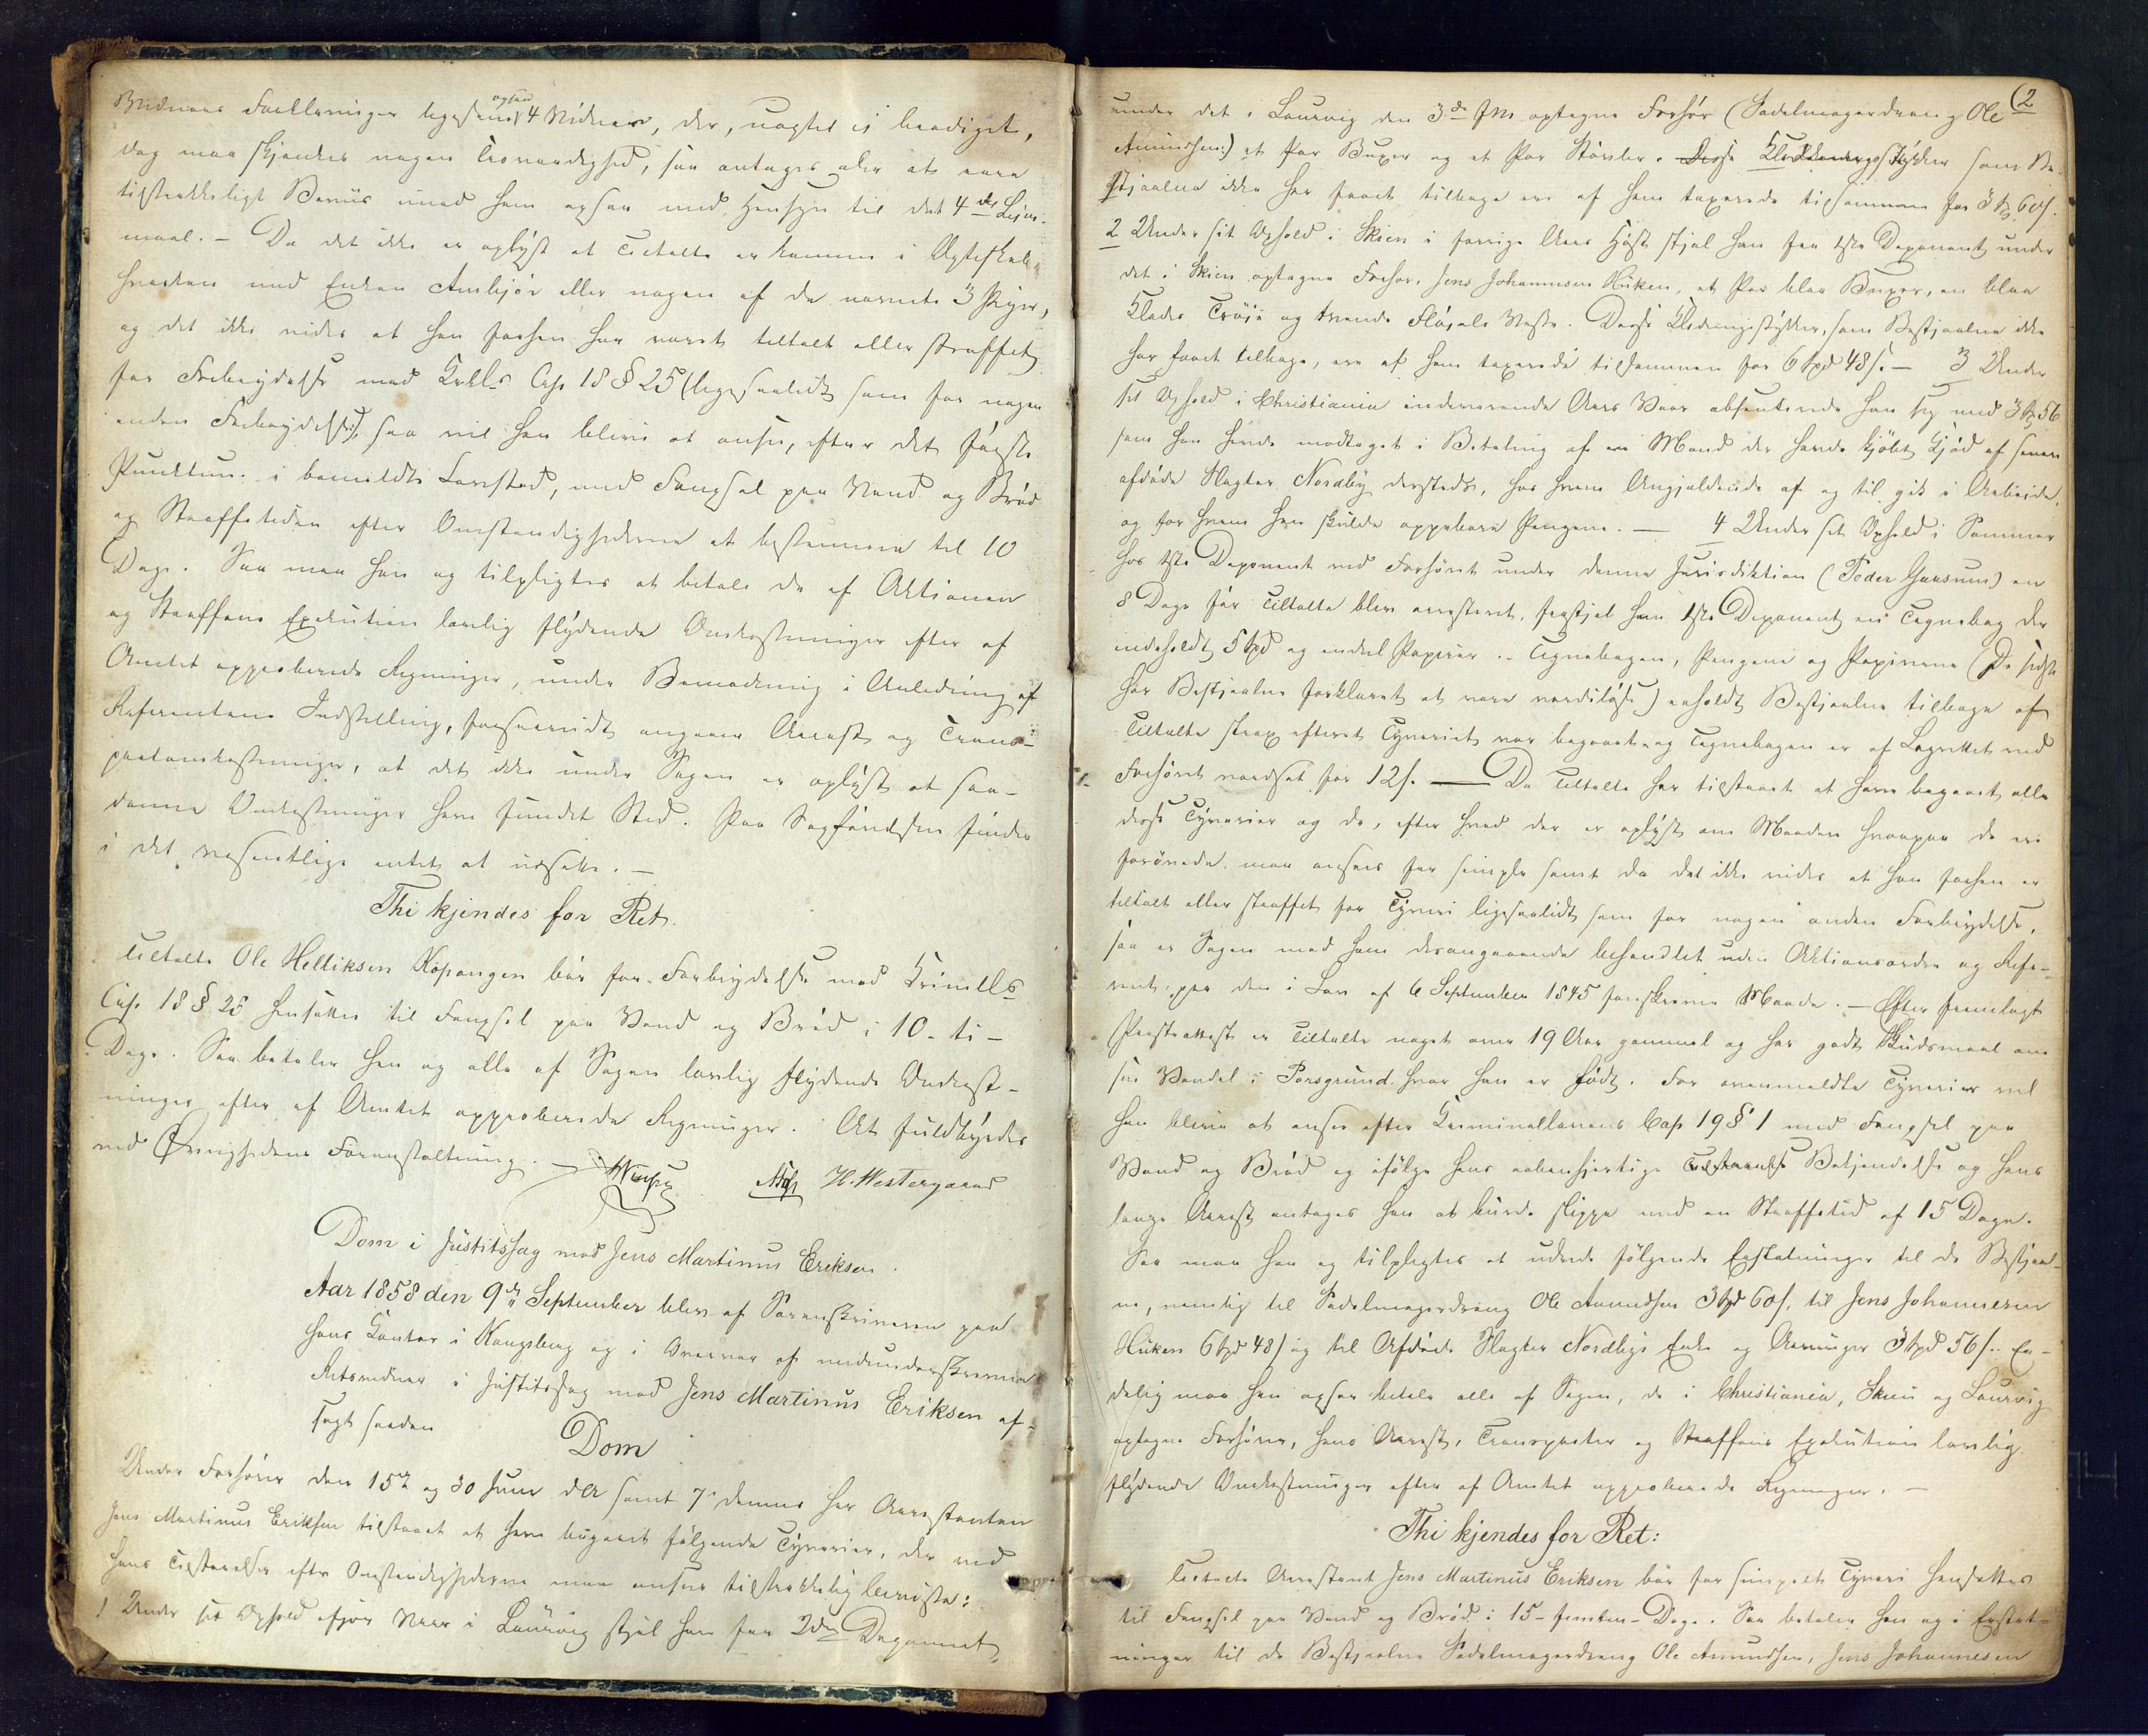 Vidners Forklaringer ligesom 4 Vidner, der, uagtet ei beediget,
ogsaa
dog maa skjænkes nogen Troværdighed, saa antages der at være
tilstrækkeligt Beviis imod ham ogsaa med Hensyn til det 4de Leier-
maal. – Da det ikke er oplyst at Tiltalte er kommen i Ægteskab
hverken med Enken Anbjør eller nogen af de nævnte 3 Piger,
og det ikke vides at han forhen har været tiltalt eller straffet
for Forbrydelse mod Crlls Cap 18 § 25 (ligesaalidt som for nogen
anden Forbrydelse), saa vil han blive at ansee, efter det første
Punktum i bemeldte Lovsted, med Fængsel paa Vand og Brød
og Straffetiden efter Omstændighederne at bestemme til 10
Dage. Saa maa han og tilpligtes at betale de af Aktionen
og Straffens Exekution lovlig flydende Omkostninger efter af
Amtet approberende Regninger, under Bemærkning i Anledning af
Referentens Indstilling, forsaavidt angaaer Arrest og Trans-
portomkostninger, at det ikke under Sagen er oplyst at saa-
danne Omkostninger have fundet Sted. Paa Sagførelsen findes
i det væsentlige intet at udsætte. –
Thi kjendes for Ret.
Tiltalte Ole Helliksen Kopangen bør for Forbrydelse mod Crimlls
Cap 18 § 25 hensættes til Fængsel paa Vand og Brød i 10 – ti –
Dage. Saa betaler han og alle af Sagen lovlig flydende Omkost-
ninger efter af Amtet approberede Regninger. At fuldbyrdes
ved Øvrighedens Foranstaltning. –
H. Westergaard
Dom i Justitssag mod Jens Martinus Eriksen.
Aar 1858 den 9de September blev af Sorenskriveren paa
hans Contor i Kongsberg og i Overvær af medunderskrevne
Retsvidner i Justitssag mod Jens Martinus Eriksen af-
sagt saadan
Dom
Under Forhører den 15de og 30 Juni d A samt 7de dennes har Arrestanten
Jens Martinus Eriksen tilstaaet at have begaaet følgende Tyverier, der ved
hans Tilstaaelse efter Omstændighederne maa ansees tilstrækkelig beviste:
1 Under sit Ophold ifjor Vaar i Laurvig stjal han fra 2den Deponent
(2
under det i Laurvig den 3de f M optagne Forhør (Sadelmagerdreng Ole
Amundsen) et Par Buxer og et Par Støvler. Disse Klædningsstykker som Be-
stjaalne ikke har faaet tilbage ere af ham taxerede tilsammen for 3 Spd 60 s.
2 Under sit Ophold i Skien i forrige Aars Høst stjal han fra 1ste Deponent under
det i Skien optagne Forhør, Jens Johannesen Huken, et Par blaa Buxer, en blaa
Klædes Trøie og tvende Fløiels Veste. Disse Klædningsstykker, som Bestjaalne ikke
har faaet tilbage, ere af ham taxerede tilsammen for 6 Spd 48 s. – 3 Under
sit Ophold i Christiania indeværende Aars Vaar absenterede han sig med 3 Spd 56
som han havde modtaget i Betaling af en Mand der havde kjøbt Kjød af senere
afdøde Slagter Nordby dersteds, hos hvem Angjældende af og til gik i Arbeide
og for hvem han skulde oppebære Pengene. — 4 Under sit Ophold i Sommer
hos 1ste Deponent ved Forhøret under denne Jurisdiktion (Peder Gaasum) en
8 Dage før Tiltalte blev arresteret, frastjal han 1ste Deponent en Tegnebog der
indeholdt 5 Spd og endeel Papirer. Tegnebogen, Pengene og Papirerne (De sidste
har Bestjaalne forklaret at være værdiløse) erholdt Bestjaalne tilbage af
Tiltalte strax efterat Tyveriet var begaaet og Tegnebogen er af Lagrettet ved
Forhøret værdsat for 12 s. — Da Tiltalte har tilstaaet at have begaaet alle
disse Tyverier og de, efter hvad der er oplyst om Maaden hvorpaa de ere
forøvede maa ansees for simple samt da det ikke vides at han forhen er
tiltalt eller straffet for Tyveri ligesaalidt som for nogen anden Forbrydelse,
saa er Sagen mod ham desangaaende behandlet uden Aktionsordre og Refe-
rent, paa den i Lov af 6 September 1845 foreskrevne Maade. – Efter fremlagt
Præsteattest er Tiltalte noget over 19 Aar gammel og har godt Skudsmaal om
sin Vandel i Porsgrund hvor han er født. For ovenmeldte Tyverier vil
han blive at ansee efter Criminallovens Cap 19 § 1 med Fængsel paa
Vand og Brød og ifølge hans aabenhjertige Bekjendelse og hans
lange Arrest antages han at burde slippe med en Straffetid af 15 Dage.
Saa maa han og tilpligtes at udrede følgende Erstatninger til de Bestjaal-
ne, nemlig til Sadelmagerdreng Ole Amundsen 3 Spd 60 s, til Jens Johannesen
Huken 6 Spd 48 s og til Afdøde Slagter Nordbys Enke og Arvinger 3 Spd 56 s. En-
delig maa han ogsaa betale alle af Sagen, de i Christiania, Skien og Laurvig
optagne Forhører, hans Arrest, Transporter og Straffens Exekution lovlig
flydende Omkostninger efter af Amtet approberede Regninger. –
Thi kjendes for Ret:
Tiltalte Arrestant Jens Martinus Eriksen bør for simpelt Tyveri hensættes
til Fængsel paa Vand og Brød i 15 – femten – Dage. Saa betaler han og i Erstat-
ninger til de Bestjaalne Sadelmagerdreng Ole Amundsen, Jens Johannesen